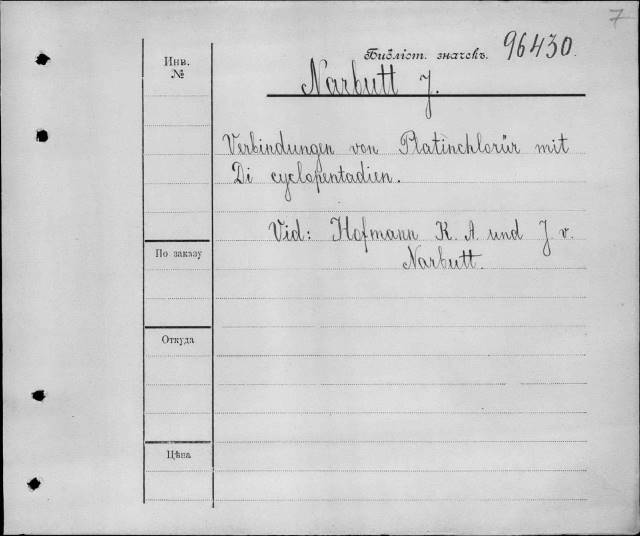 7
Библіот. значекъ. 96430.
Инв.
№
Narbutt J.
Verbindungen von Platinchlorür mit
Di cyclopentadien.
Vid: Hofmann K. A. und J v.
Narbutt.
По заказу
Откуда
Цѣна